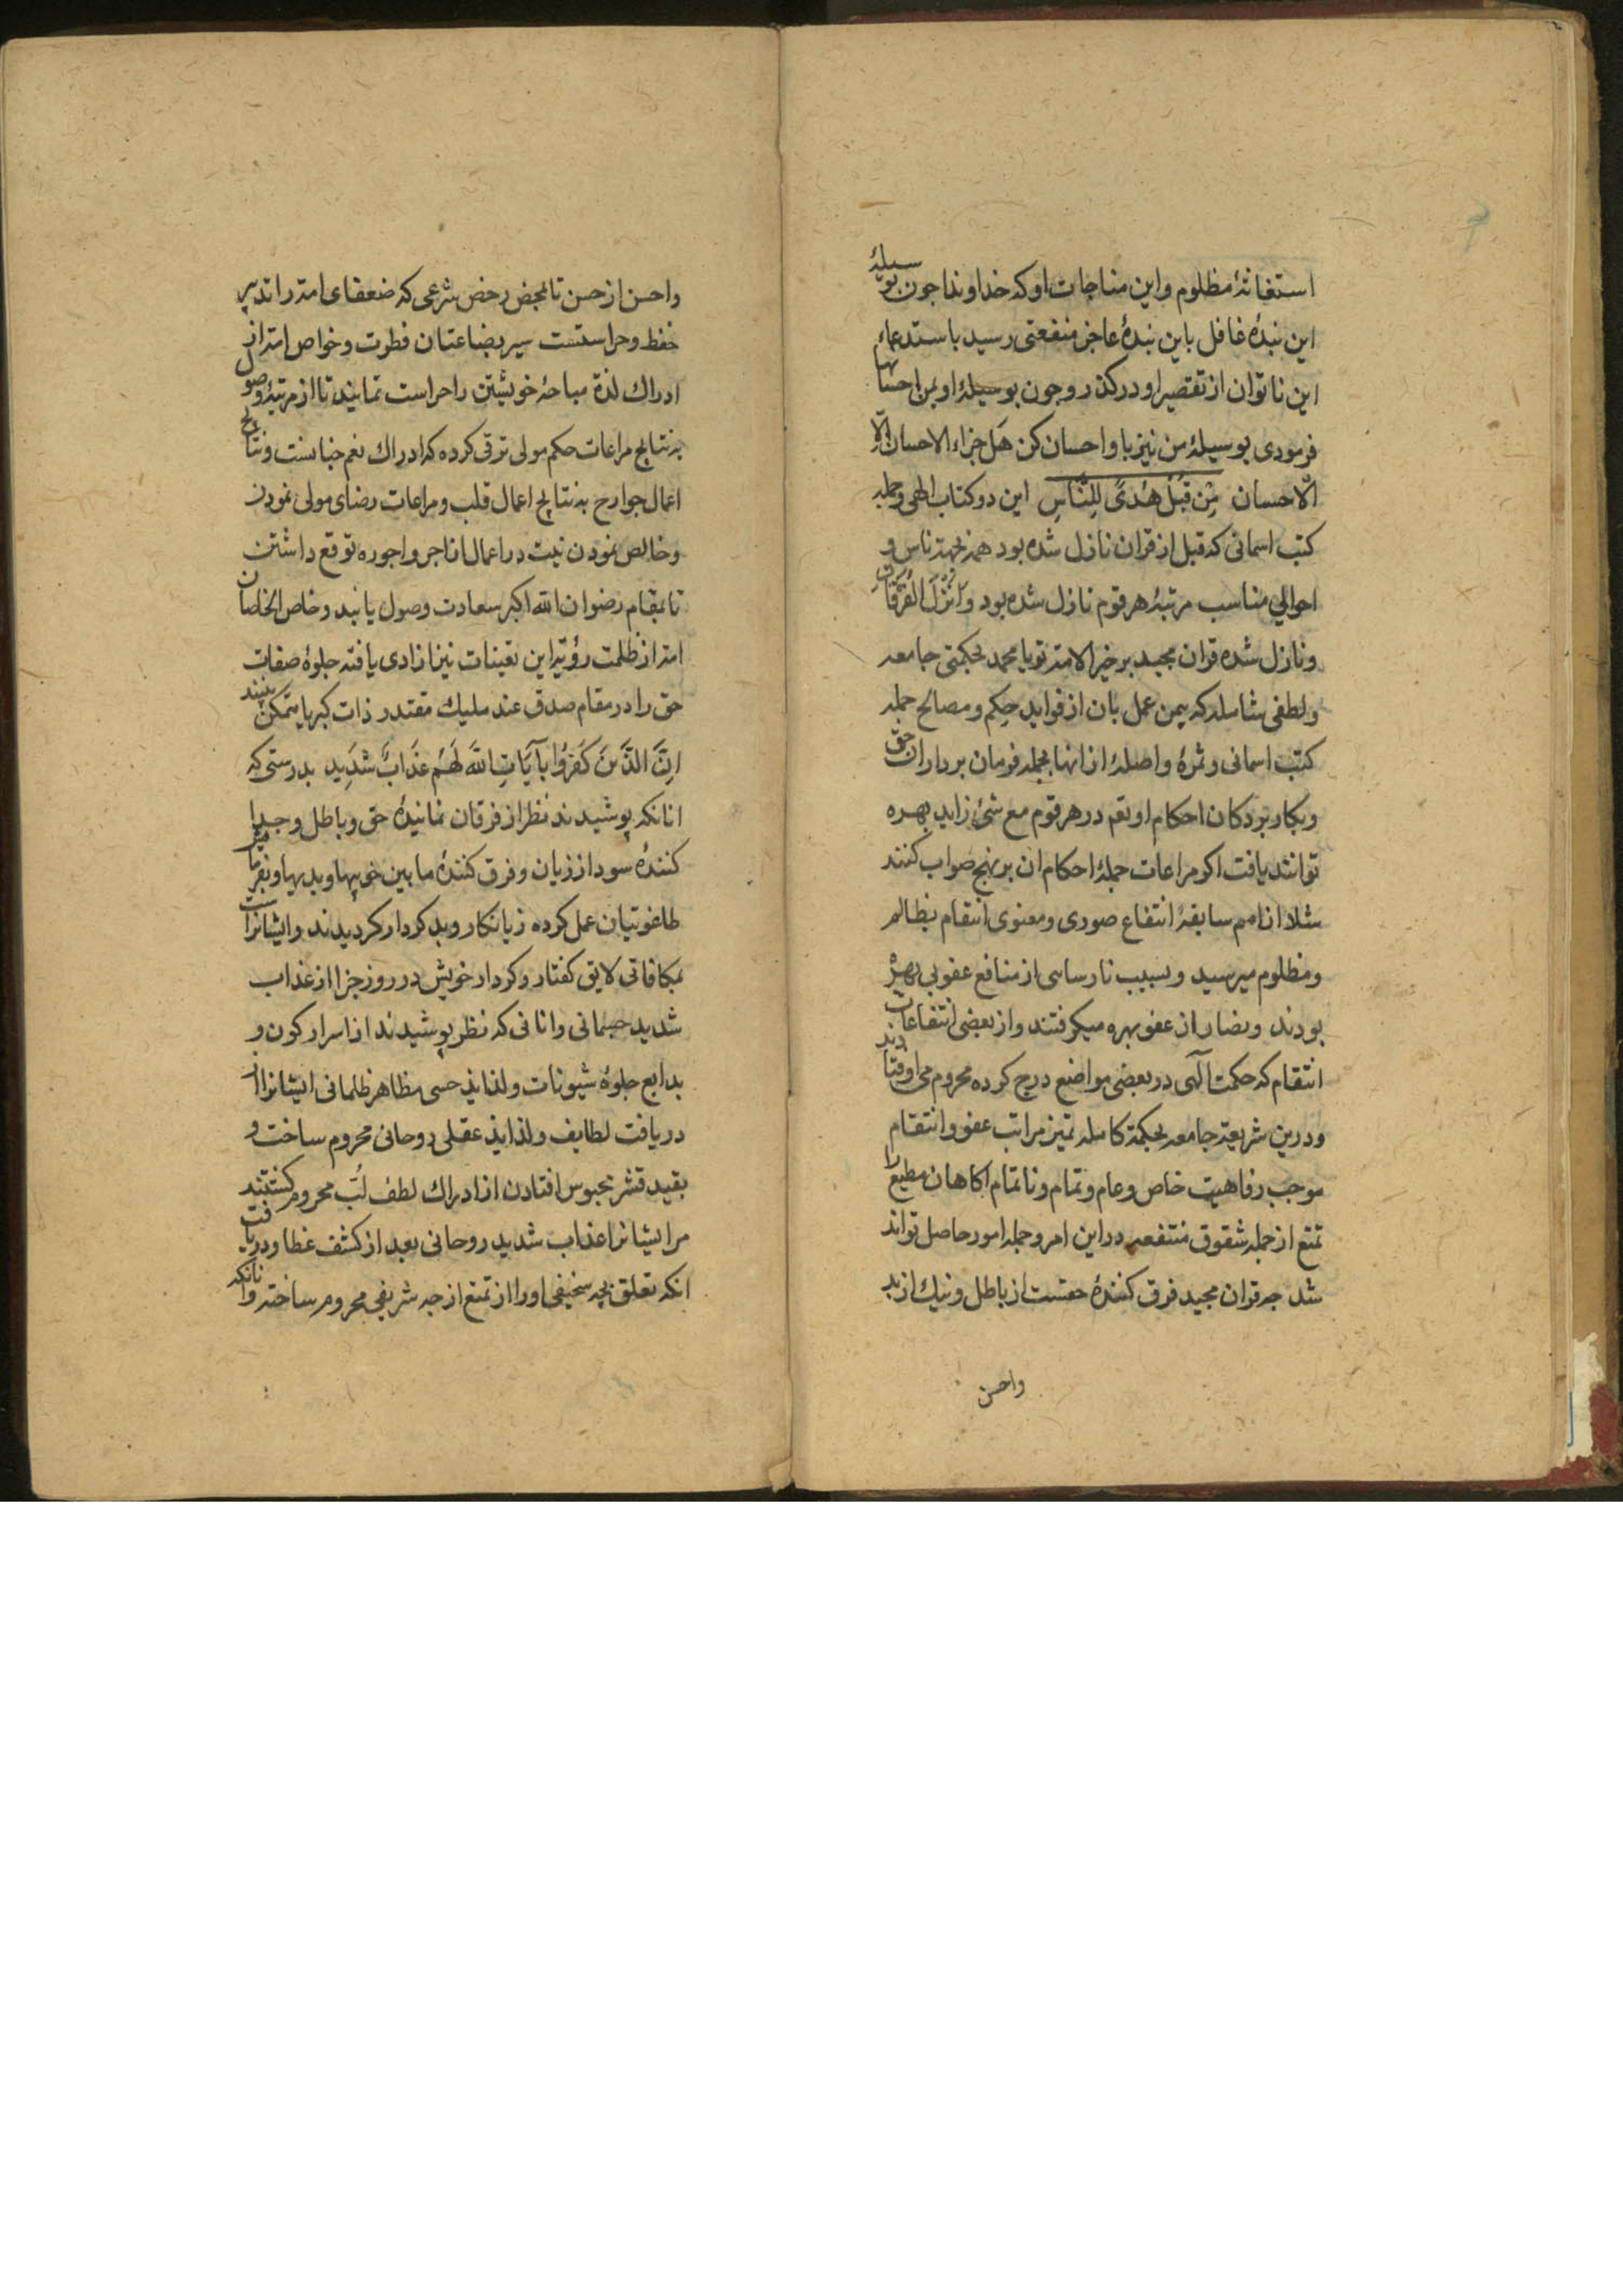 استغاثهٔ مظلوم و این مناجات او که خداوندا چون بوسیلهٔ
این بندهٔ غافل باین بندهٔ عاجز منفعتی رسید باستدعاء
این ناتوان از تقصیر او درکذر و چون بوسیلهٔ او بمن احسانها
فرمودی بوسیلهٔ من نیز با و احسان کن هَل جزاء الاحسان الّا
الّاحسان مِن قَبلُ هُدیً لِلنّاسِ این دو کتاب الهی و جمله
کتب اسمانی که قبل از قران نازل شده بود همه بجهة ناس و
احوالی مناسب مرتبهٔ هر قوم نازل شده بود وَ اَنْزَلَ الفُرقانَ
و نازل شده قران مجید بر خیر الامة تو یا محمد بحکمتی جامعه
و لطفی شامله که بیمن عمل بان از فواید حِکم و مصالح جمله
کتب اسمانی و ثمرهٔ واصلهٔ از انها بجمله فرمان برداران حق
و بکار بردکان احکام او تعم در هر قوم مع شئ زاید بهره
توانند یافت اکر مراعات جملهٔ احکام ان بر نهج صواب کنند
مثلا از امم سابقهٔ انتفاع صوری و معنوی انتقام بظالم
و مظلوم میرسید و بسبب نارسایی از منافع عفو بی بهرهْ
بودند و نصارا از عفو بهره میکرفتند و از بعضی انتفاعات
انتقام که حکمت آلهی در بعضی مواضع درج کرده محروم می افتادند
و درین شریعة جامعه بحکمة کامله تمیز مراتب عفو و انتقام
موجب رفاهیت خاص و عام و تمام و ناتمام اکاهان مطیع را
تمتع از جمله شقوق منتفعه در این امر و جمله امور حاصل تواند
شد چه قران مجید فرق کنندهٔ حقست از باطل و نیك از بد
واحسن
واحسن از حسن تا بمحض رخص شرعی که ضعفای امة را تدبیر
حفظ و حراستست سیر بضاعتان فطرت و خواص امة از
ادراك لذة مباحهٔ خویشتن را حراست نمایند تا از مرتبهٔ وصول
به نتایج مراعات حکم مولی ترقی کرده که ادراك نعم جنانست و نتایج
اعمال جوارح به نتایج اعمال قلب و مراعات رضای مولی نمودن
و خالص نمودن نیت در اعمال از اجر و اجوره توقع داشتن
تا بمقام رضوان الله اکبر سعادت وصول یابند و خاص الخاصان
امة از ظلمت رؤیة این تعینات نیز ازادی یافته جلوهٔ صفات
حق را در مقام صدق عند ملیك مقتدر ذات کبریا متمکن بینند
اِنَّ الَّذینَ کَفَرُوا بِآیَاتِ اللّهِ لَهُم عَذَابٌ شَدِید بدرستی که
انانکه پوشیدند نظر از فرقان نمانیدهٔ حق و باطل و جدا
کنندهٔ سود از زیان و فرق کنندهٔ ما بین خوبیها و بدیها و بفرمان
طاغوتیان عمل کرده زیانکار و بد کردار کردیدند و ایشانراست
بمکافاتی لایق کفتار و کردار خویش در روز جزا از عذاب
شدید جسمانی و انانی که نظر پوشیدند از اسرار کون و
بدایع جلوهٔ شیونات و لذایذ حسی مظاهر ظلمانی ایشانرا از
دریافت لطایف و لذایذ عقلی روحانی محروم ساخت و
بقید قشر محبوس افتادن از ادراك لطف لُب محروم کشتند
مر ایشانرا عذاب شدید روحانی بعد از کشف غطا و دریافت
انکه تعلق بچه سخیفی او را از تمتع از چه شریفی محروم ساخته و انانکه